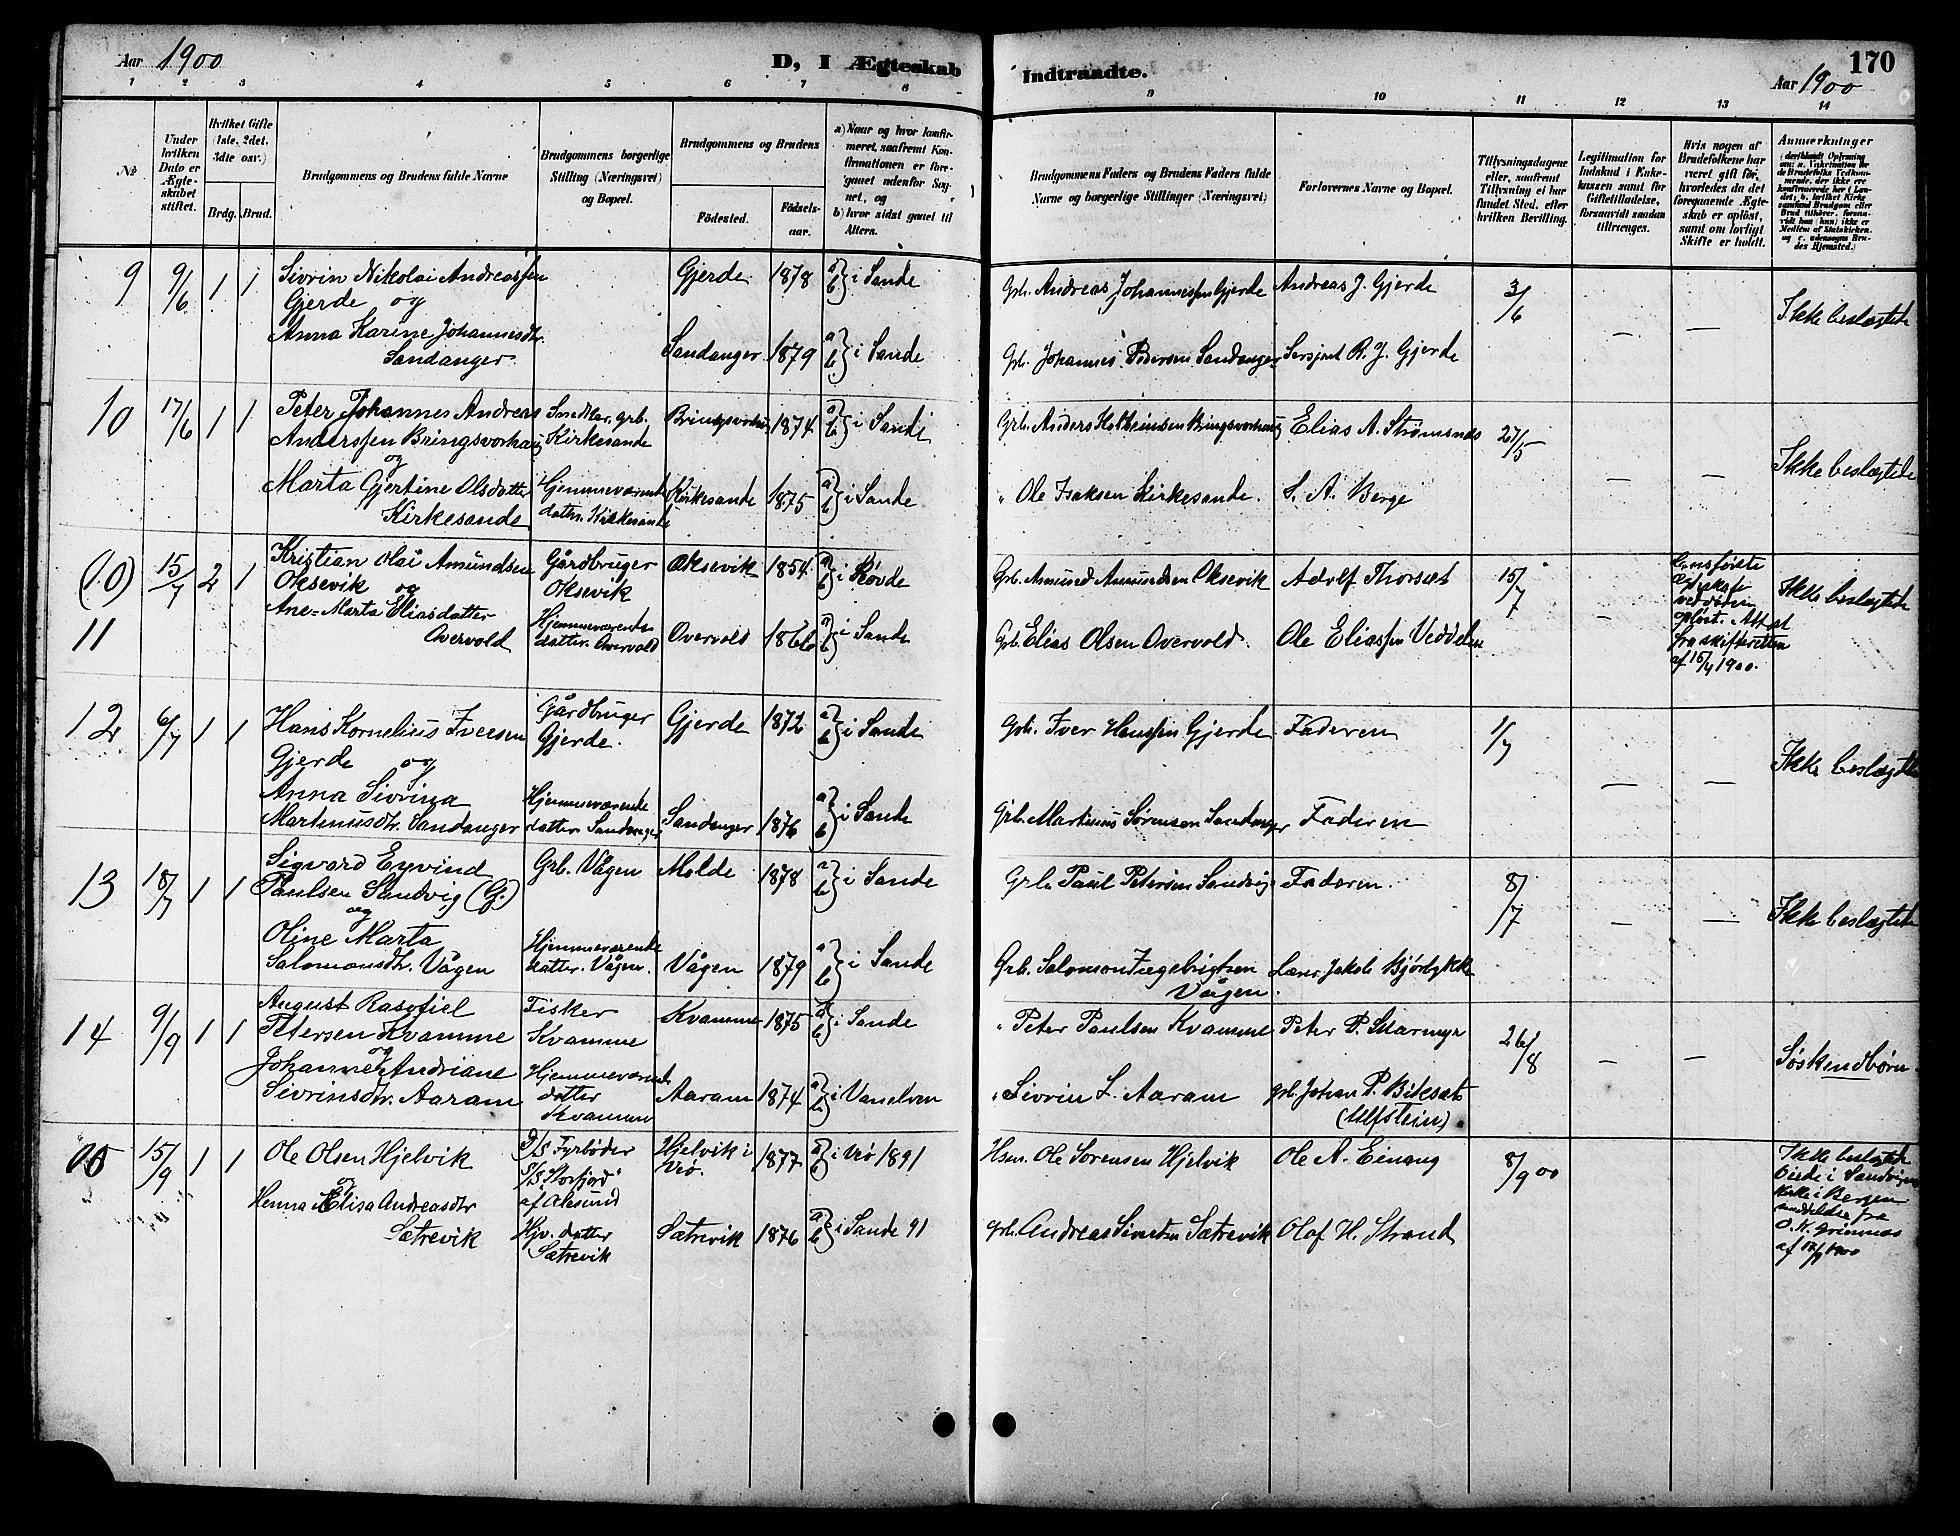 Aar 1900
D, I Ægteskab Indtraadte.
170
Aar 1900
1 2 3 4 5 6 7 8 9 10 11 12 13 14
№
Under hvilken Dato er Ægteskabet stiftet.
Hvilket Gifte (1ste, 2det, 3die osv.)
Brdg. Brud.
Brudgommens og Brudens fulde Navne
Brudgommens borgerlige Stilling (Næringsvei) og Bopæl.
Brudgommens og Brudens
Fødested.
Fødselsaar.
a) Naar og hvor konfirmeret, saafremt Konfirmationen er foregaaet udenfor Sognet, og
b) hvor sidst gaaet til Alters.
Brudgommens Faders og Brudens Faders fulde Navne og borgerlige Stillinger (Næringsvei)
Forlovernes Navne og Bopæl.
Tillysningsdagene eller, saafremt Tillysning ei har fundet Sted, efter hvilken Bevilling.
Legitimation for Indskud i Enkekassen samt for Giftetilladelse, forsaavidt saadan tiltrænges.
Hvis nogen af Brudefolkene har været gift før, hvorledes da det foregaaende Ægteskab er opløst, samt om lovligt Skifte er holdt.
Anmerkninger
9 9/6 1 1 Sivrin Nikolai Andreassen Gjerde 1878 a) b) i Sande Grb. Andreas Johannessen Gjerde Andreas J. Gjerde 3/6 — — Ikke beslægtede
Gjerde og
Anna Karine Johannesdtr. Sandanger 1879 a) b) i Sande Grb. Johannes Pedersen Sandanger Sersjant R. J. Gjerde
Sandanger
10 17/6 1 1 Peter Johannes Andreas Smed &amp; Grb. Bringsvorhaug 1874 a) b) i Sande Grb. Anders Kolbeinsen Bringsvorhaug Elias A. Strømsnes 27/5 — — Ikke beslægtede
Anderssen Bringsvorhaug Kirkesande
og
Marta Gjertine Olsdatter Hjemmeværende Kirkesande 1875 a) b) i Sande " Ole Isaksen Kirkesande. S. A. Berge
Kirkesande dattr. Kirkesande
(10) 15/7 2 1 Kristian Olai Amundsen Gårdbruger Oksevik 1854 a) b) i Røvde Grb. Amund Amundsen Oksevik Adolf Thorsæt 15/7 — Ikke beslægtede
Oksevik og Oksevik
11 Ane-Marta Eliasdatter Hjemmeværende Overvold 1866 a) b) i Sande Grb. Elias Olsen Overvold. Ole Eliassen Veddelen
Overvold datter. Overvold
ægteskab ved døden opløst. Attest fra skifteretten af 15/4 1900.
12 6/7 1 1 Hans Kornelius Iversen Gårdbruger Gjerde 1872 a) b) i Sande Grb. Iver Hanssen Gjerde Faderen 1/7 — — Ikke beslægtede
Gjerde og Gjerde.
Anna Sivrina Hjemmeværende Sandanger 1876 a) b) i Sande Grb. Martinus Sørensen Sandanger Faderen
Martinusdtr. Sandanger datter. Sandanger
13 18/7 1 1 Sigvard Eyvind Grb. Vågen Molde 1878 a) b) i Sande Grb. Paul Petersen Sandvig Faderen. 8/7 — — Ikke beslægtede
Paulsen Sandvig (G.)
og
Oline Marta Hjemmeværende Vågen 1879 a) b) i Sande Grb. Salomon Ingebrigtsen Lærer Jakob Bjørlykke
Salomonsdtr. Vågen datter. Vågen. Vågen.
14 9/9 1 1 August Rasofiel Fisker Kvamme 1875 a) b) i Sande " Peter Paulsen Kvamme Peter P. Skarmyr 26/8 — — Søskendbørn
Petersen Kvamme Kvamme
og
Johanne Andriane Hjemmeværende Aaram 1874 a) b) i Vanelven " Sivrin L. Aaram grb. Johan P. Biksæt
Sivrinsdtr. Aaram datter Kvamme (Ulfstein)
15/9 1 1 Ole Olsen Hjelvik D/S Fyrbøder Hjelvik i Vrø. 1877 a) b) i Vrø 1891 Hsm. Ole Sørensen Hjelvik Ole A. Einang 8/9 00
og S/S "Storfjord" af Ålesund
Henna Elisa Andreasdtr Hjv. datter Sætrevik 1876 a) b) i Sande 91 grb. Andreas Sivertsen Sætrevik Olaf H. Strand
Sætrevik Sætrevik
Ikke beslægtede Viede i Sandvigens Kirke i Bergen meddelelse fra O. K. Grimnæs af 1900